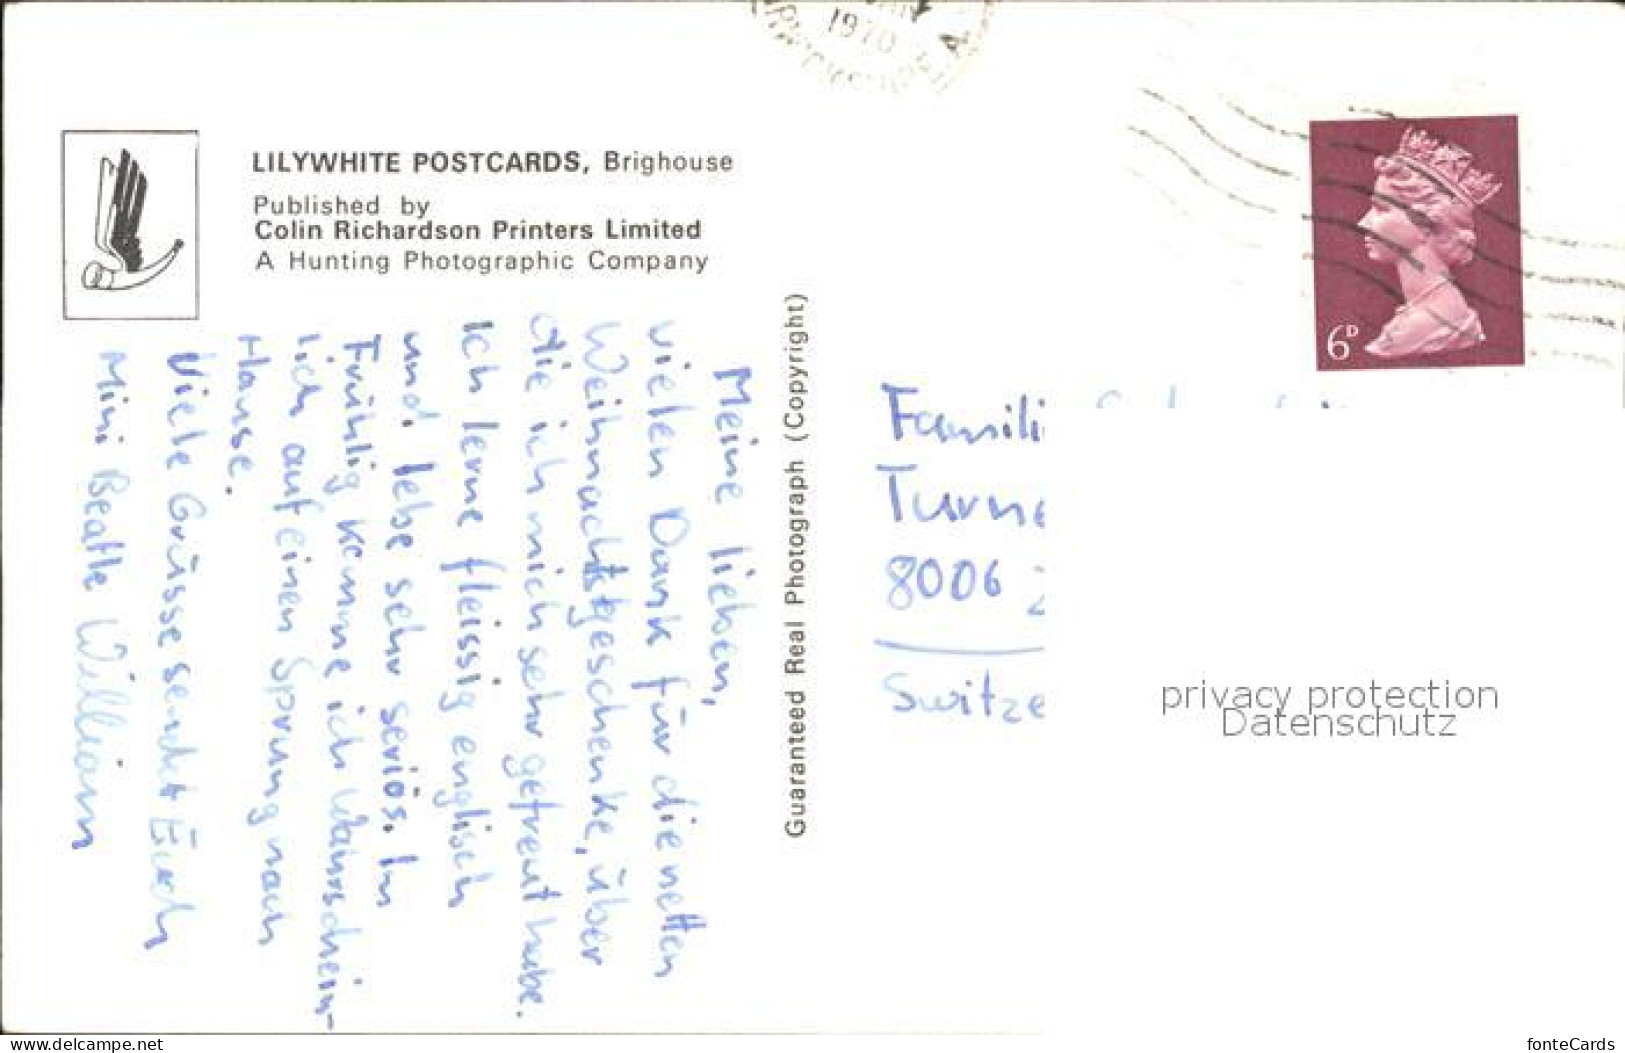 1970
LILYWHITE POSTCARDS, Brighouse
Published by
Colin Richardson Printers Limited
A Hunting Photographic Company
Guaranteed Real Photograph (Copyright)
Meine lieben,
vielen Dank für die netten
Weihnachtsgeschenke, über
die ich mich sehr gefreut habe.
Ich lerne fleissig englisch
und lebe sehr seriös. Im
Frühlig komme ich wahrschein-
lich auf einen Sprung nach
Hause.
Viele Grüsse sendet Euch
Mini Beatle William
6D
Famili
Turne
8006
Switze
privacy protection
Datenschutz
www.delcampe.net
fonteCards